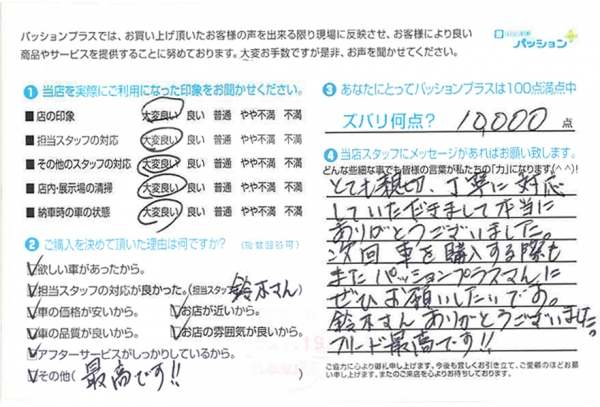 パッションプラスでは、お買い上げ頂いたお客様の声を出来る限り現場に反映させ、お客様により良い
商品やサービスを提供することに努めております。大変お手数ですが是非、お声を聞かせてください。
パッション
1 当店を実際にご利用になった印象をお聞かせください。
■ 店の印象 大変良い 良い 普通 やや不満 不満
■ 担当スタッフの対応 大変良い 良い 普通 やや不満 不満
■ その他のスタッフの対応 大変良い 良い 普通 やや不満 不満
■ 店内・展示場の清掃 大変良い 良い 普通 やや不満 不満
■ 納車時の車の状態 大変良い 良い 普通 やや不満 不満
2 ご購入を決めて頂いた理由は何ですか? (複数回答可)
欲しい車があったから。
担当スタッフの対応が良かった。(担当スタッフ 鈴木さん
車の価格が安いから。 お店が近いから。
車の品質が良いから。 お店の雰囲気が良いから。
アフターサービスがしっかりしているから。
その他( 最高です!! )
3 あなたにとってパッションプラスは100点満点中
ズバリ何点? 10,000 点
4 当店スタッフにメッセージがあればお願い致します。
どんな些細な事でも皆様の言葉が私たちの「力」になります(^^)!
とても親切、丁寧に対応
していただきまして本当に
ありがとうございました。
次回車を購入する際も
またパッションプラスさんに
ぜひお願いしたいです。
鈴木さんありがとうございました。
フリード最高です!!
ご協力に心より御礼申し上げます。今後も宜しくお引き立て、ご愛顧のほどお願い申し上げます。またのご来店を心よりお待ちしております。